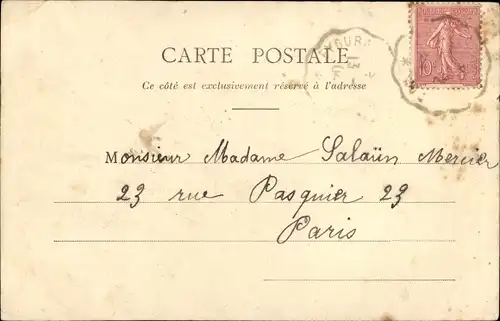 CARTE POSTALE
Ce côté est exclusivement réservé à l'adresse
10
Monsieur Madame Salaün Mercier
23 rue Pasquier 23
Paris